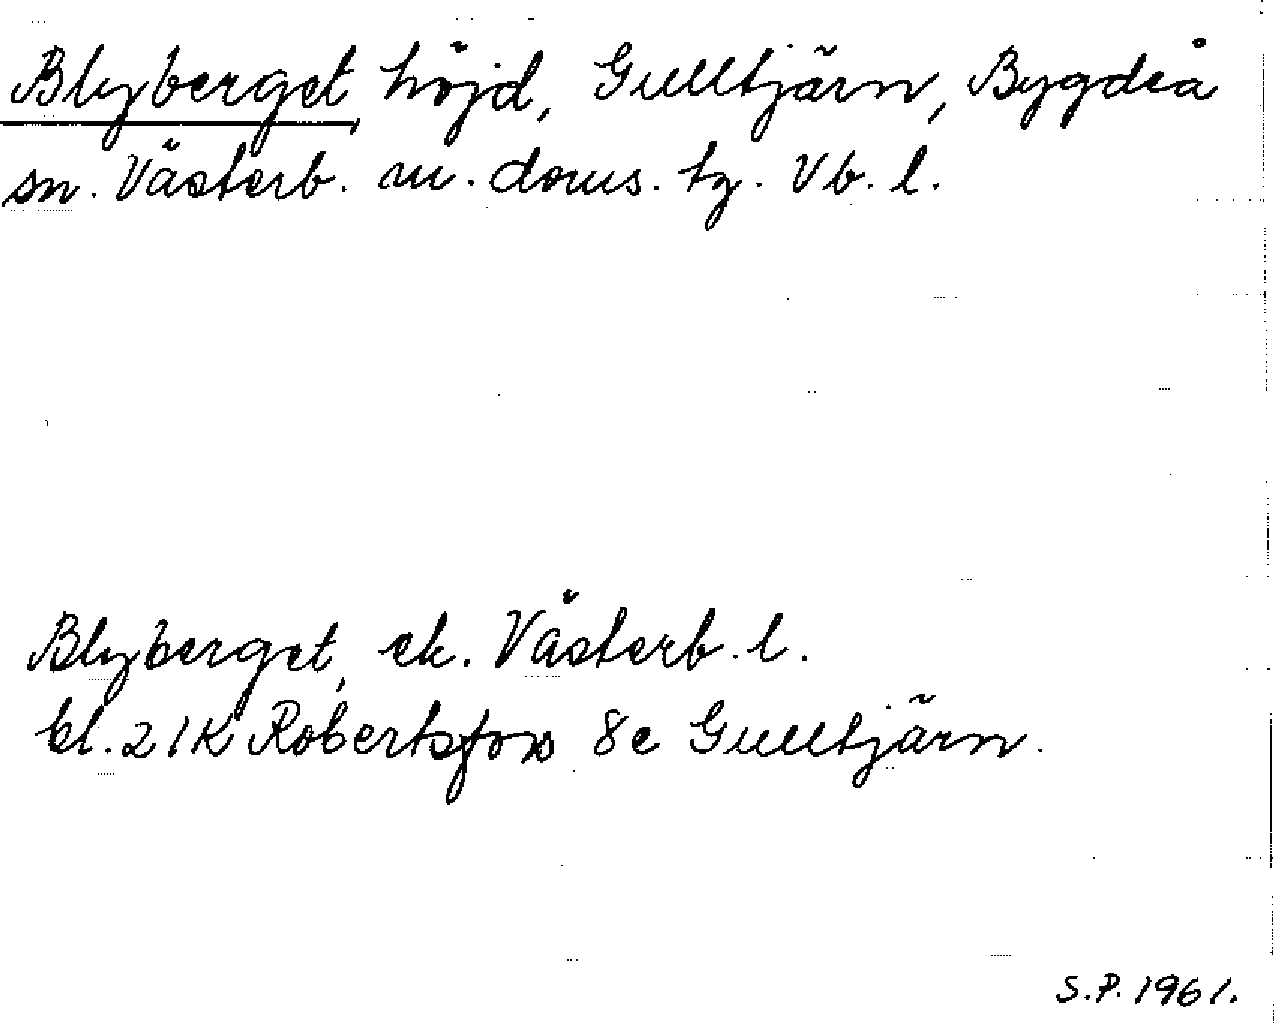 Blyberget höjd, Gulltjärn, Bygdeå
sn. Västerb. m. doms. tg. Vb. l.
Blyberget, ek. Västerb. l.
bl. 21K Robertsfors 8e Gulltjärn.
S.P. 1961.